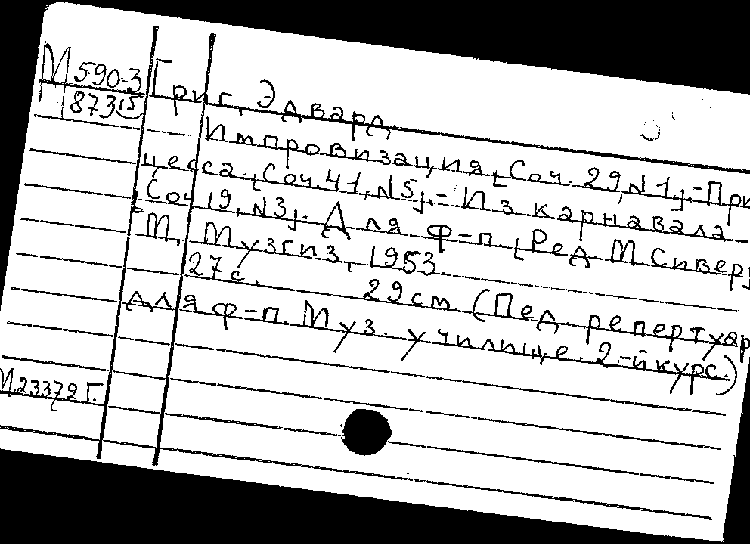 М 590-3
873
Григ, Эдвард.
Импровизация [Соч. 29, N1]. - При
цесса [Соч. 41, N5]. - Из карнавала
[Соч 19, N3]. Для ф-п [Ред М Сивер
М., Музгиз, 1953.
27с. 29см (Пед. репертуар
для ф-п. Муз. училище. 2-й курс.)
М23379г.